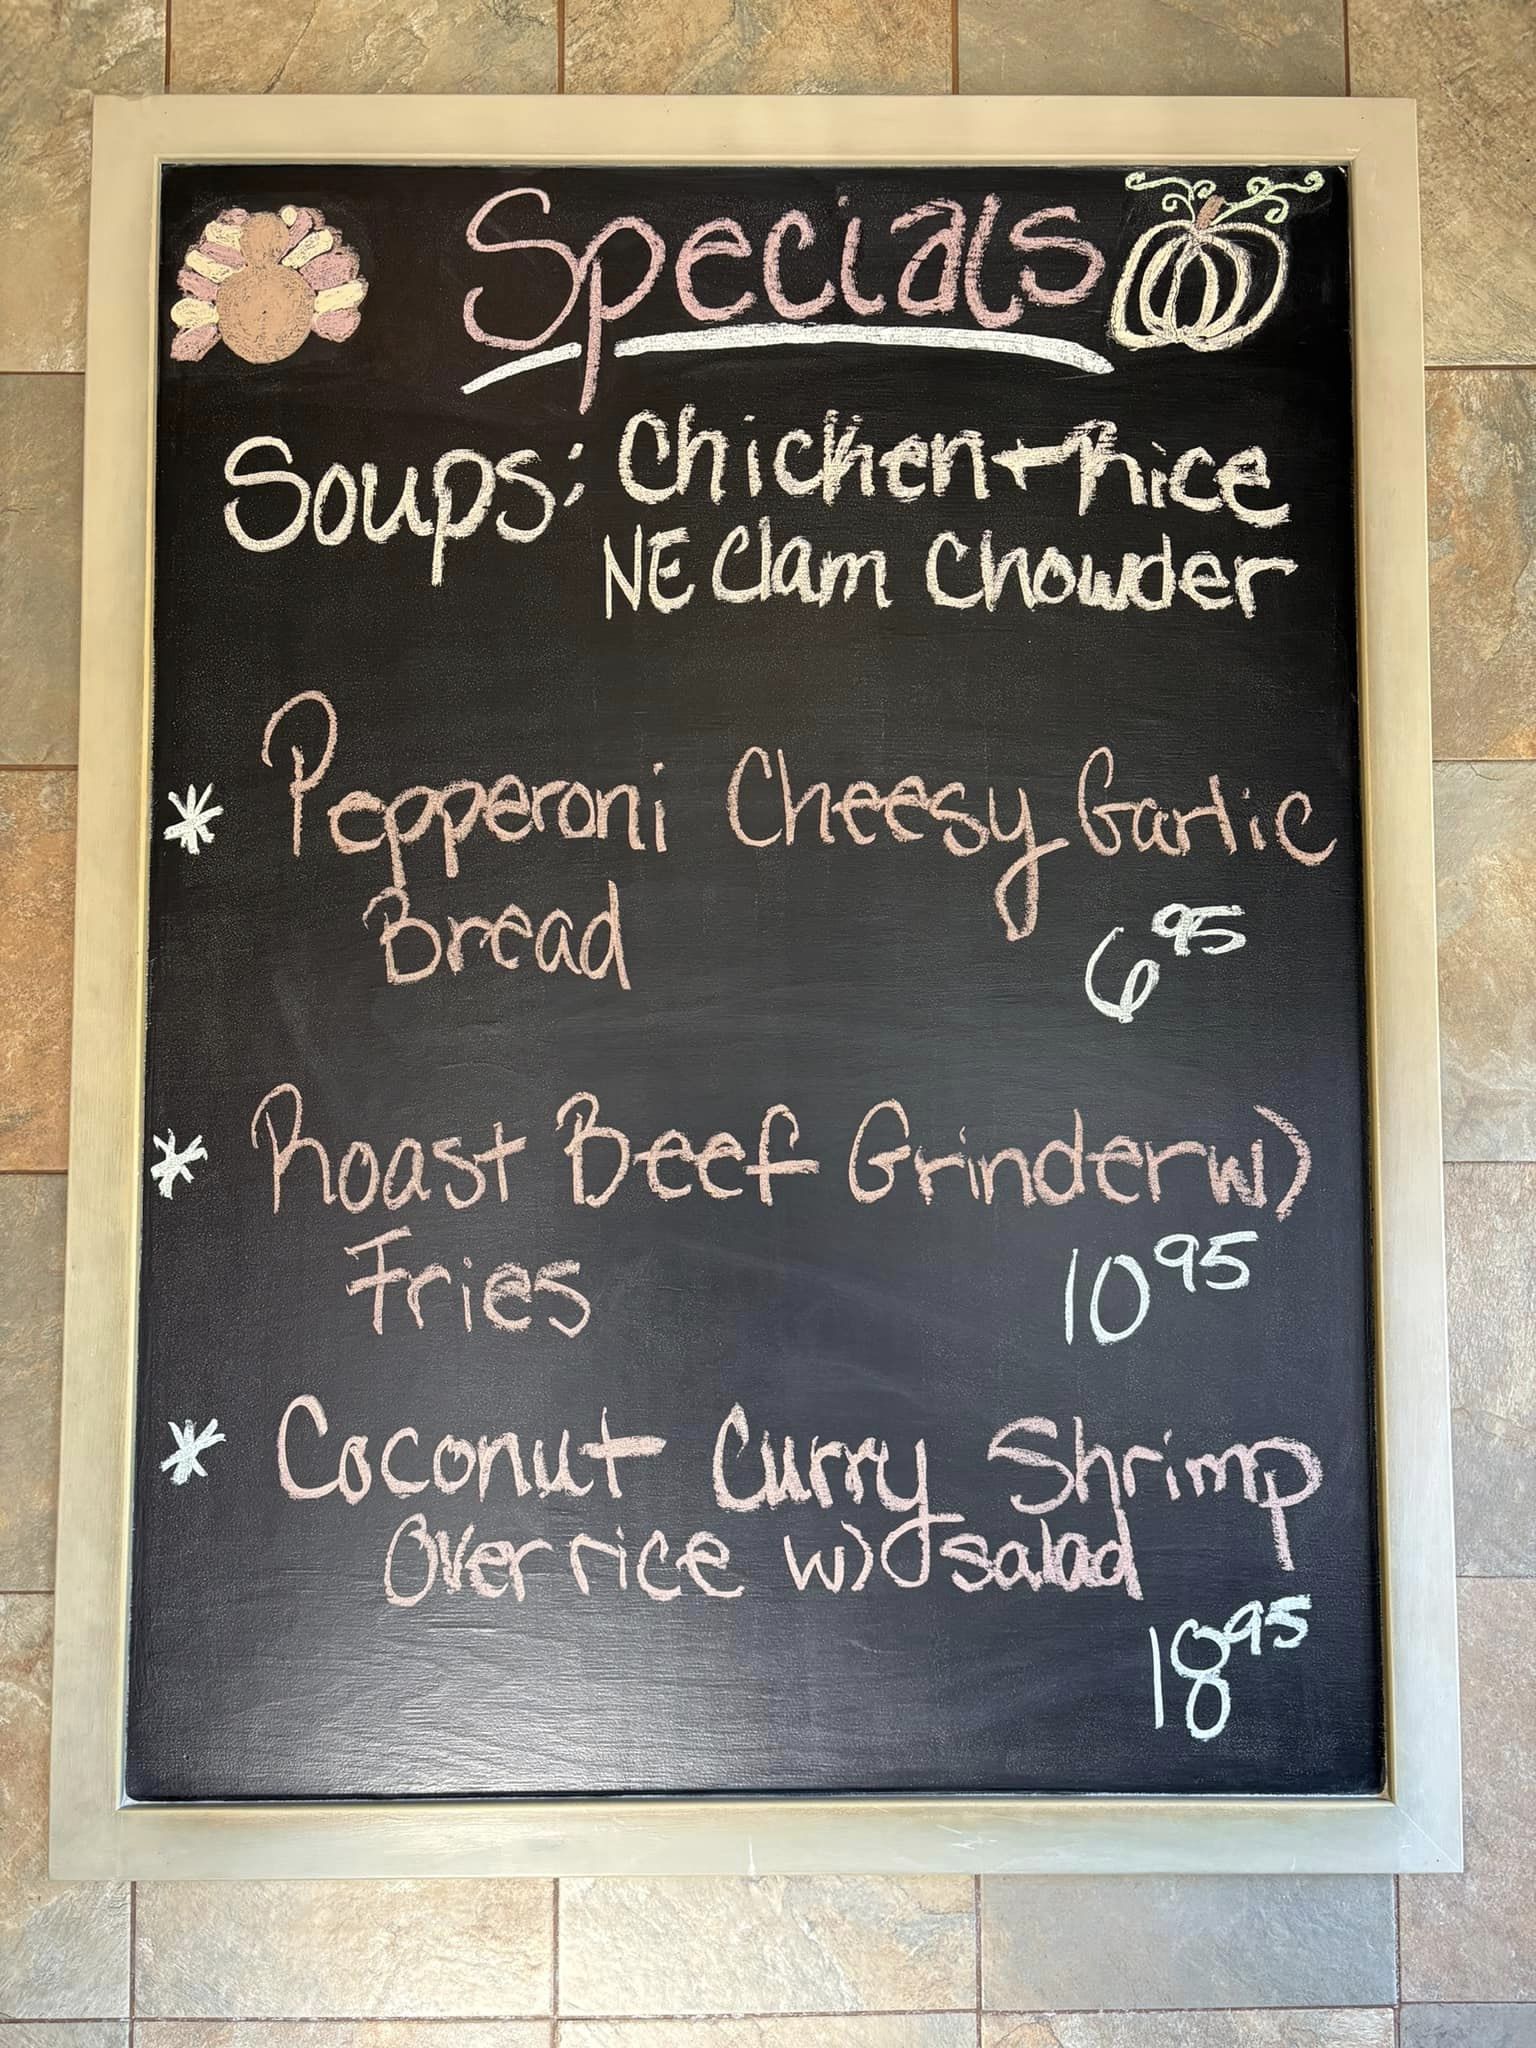 Specials
Soups: Chicken + Rice
NE Clam Chowder
* Pepperoni Cheesy Garlic
Bread 6 95
* Roast Beef Grinder w)
Fries 10 95
* Coconut Curry Shrimp
Over rice w) salad
18 95